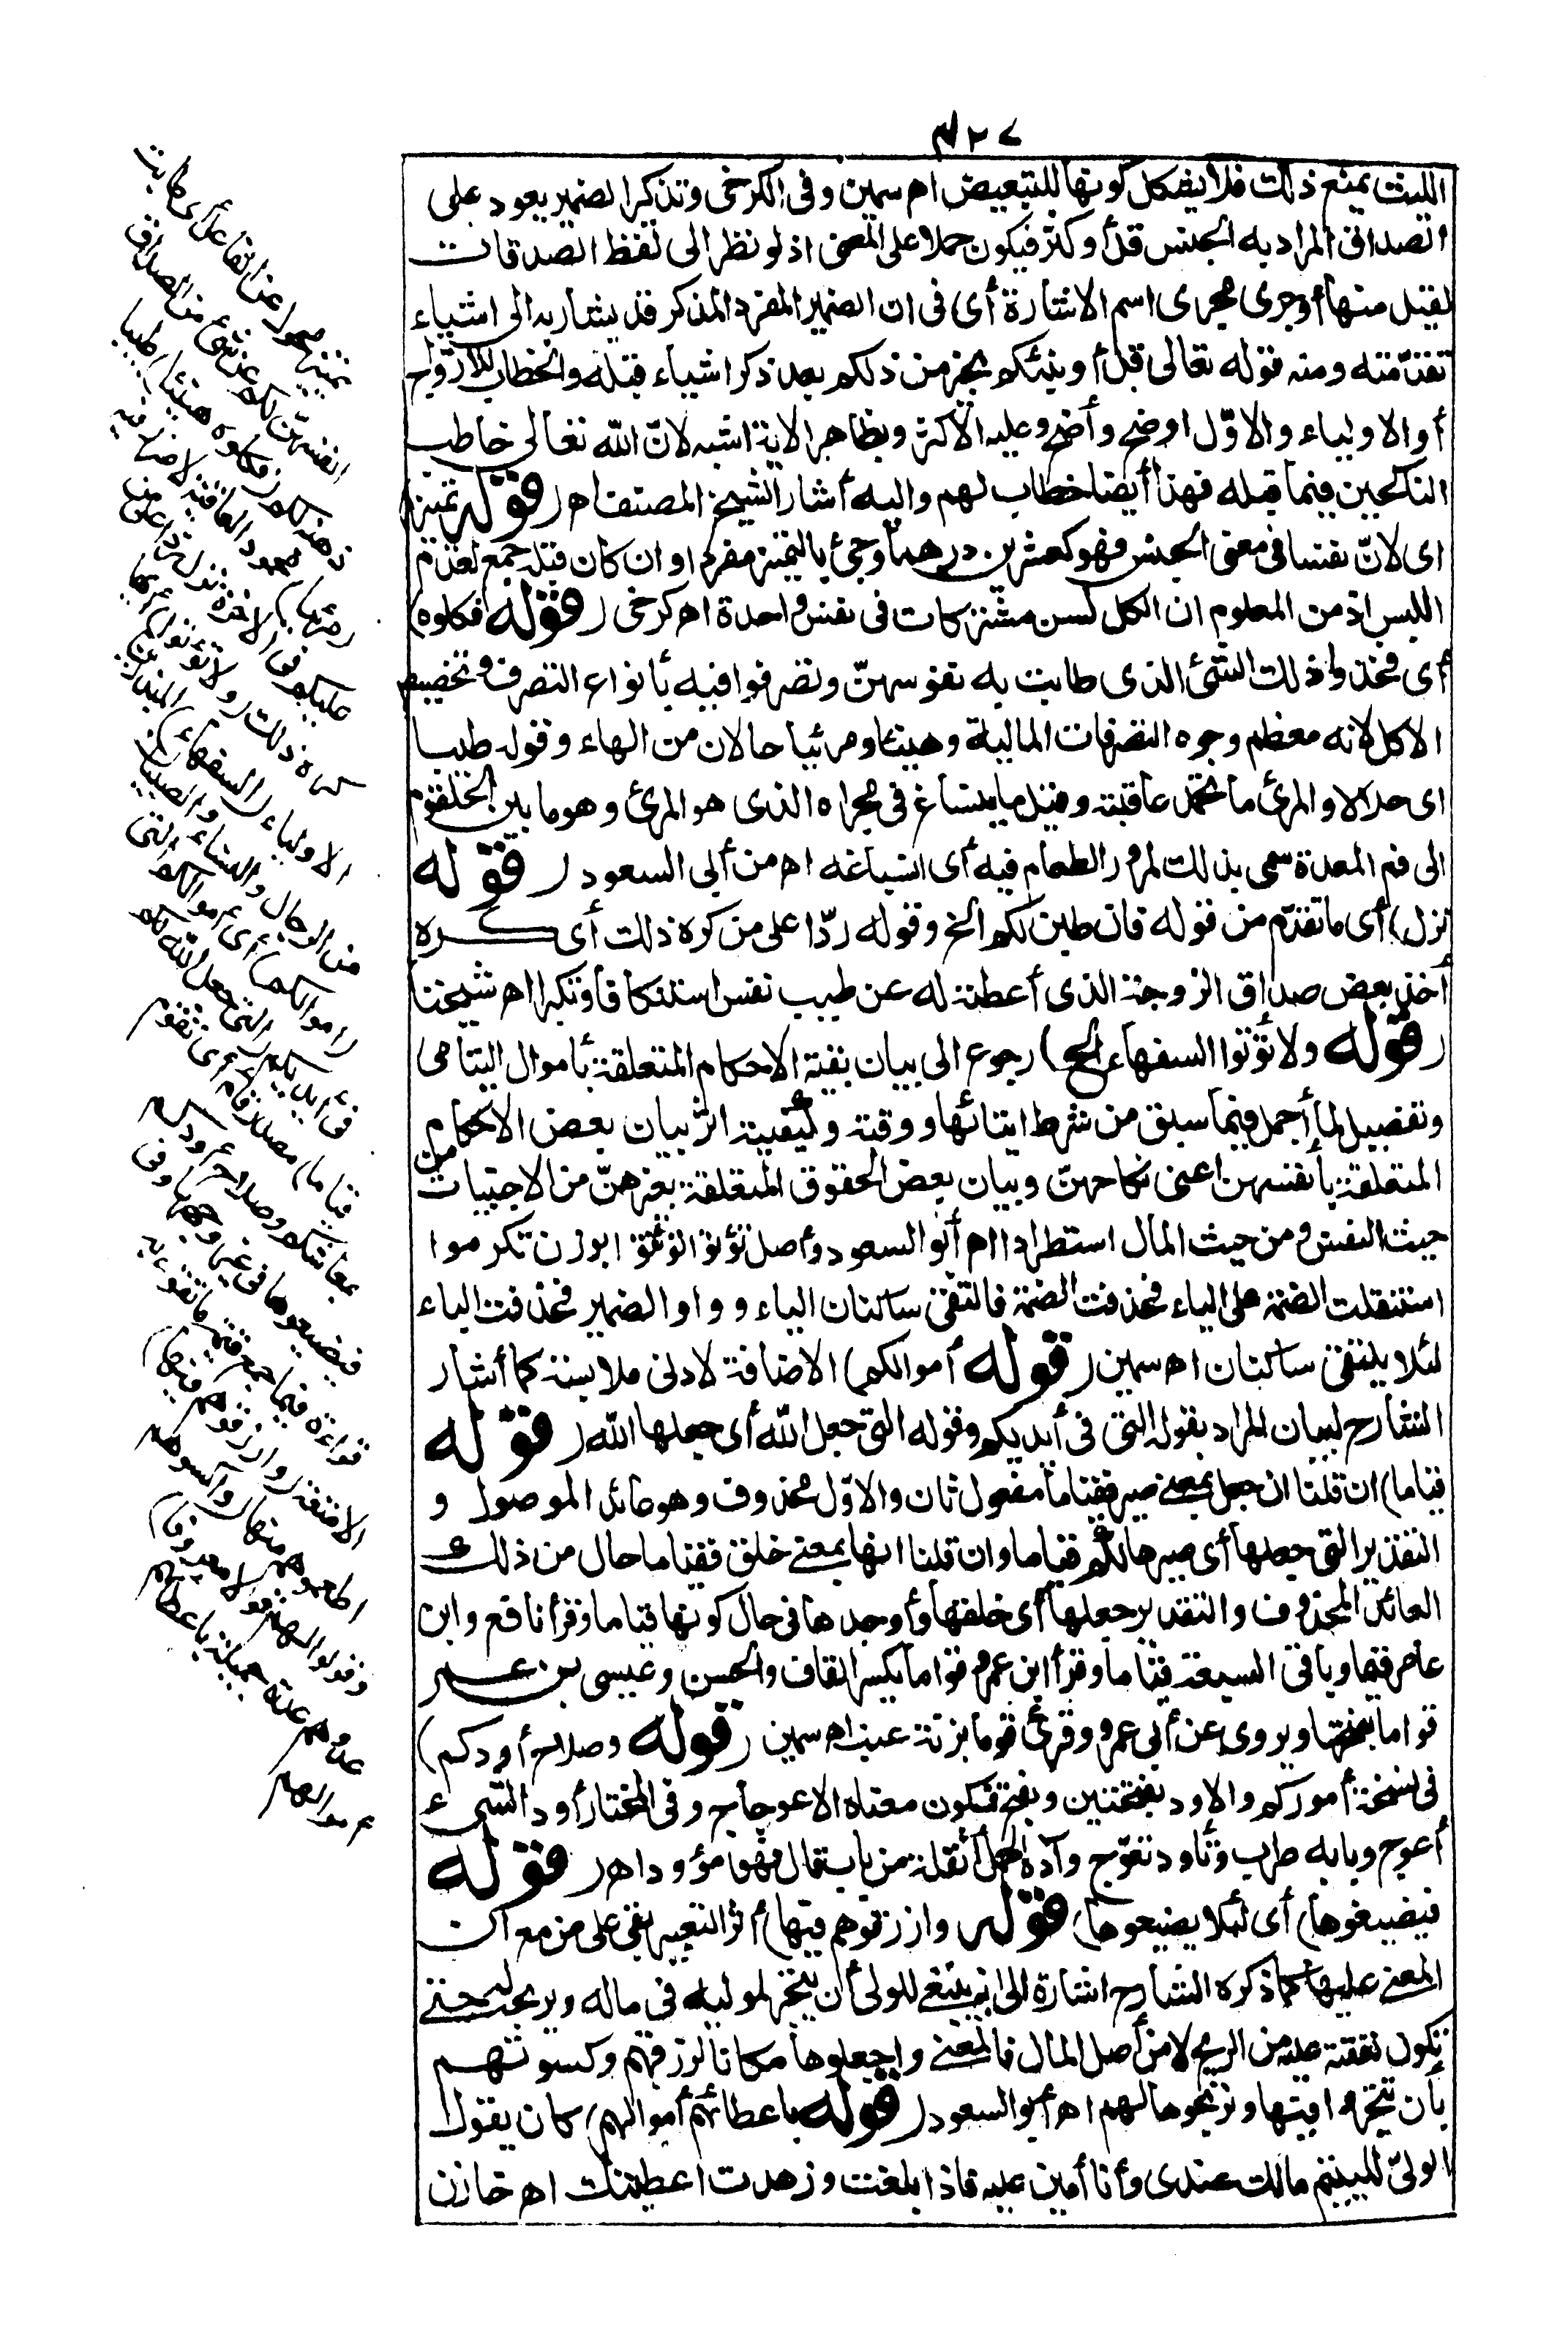 ٤٢٧
الليث يمنع ذلك فلا يشكل كونها للتبعيض اه سمين وفى الكرخى وتذكير الضمير يعود على
الصداق المراد به الجنس قل أو كثر فيكون حملا على المعنى اذ لو نظر الى لفظ الصدقات
لقيل منها أو جرى مجرى اسم الاشارة أى فى ان الضمير المفرد المذكر قد يشار به الى اشياء
تقدّمته ومنه قوله تعالى قل أونبئكم بخير من ذلكم بعد ذكر اشياء قبله والخطاب للازواج
أو الاولياء والاوّل اوضح وأصح وعليه الاكثر وبظاهر الاية اشبه لانّ الله تعالى خاطب
الناكحين فيما قبله فهذا أيضا خطاب لهم واليه أشار الشيخ المصنف اه (قوله تمييز)
اى لانّ نفسا فى معنى الجنس فهو كعشرين درهما وجئ بالتمييز مفردا وان كان قبله جمع لعدم
اللبس اذ من المعلوم ان الكل لسن مشتركات فى نفس واحدة اه كرخى (قوله فكلوه)
أى فخذوا ذلك الشئ الذى طابت به نفوسهنّ وتصرفوا فيه بأنواع التصرف وتخصيص
الاكل لانه معظم وجوه التصرفات المالية وهنيئا ومريئا حالان من الهاء وقوله طيبا
اى حلالا والمرئ ما تحمد عاقبته وقيل ما ينساغ فى مجراه الذى هو المرئ وهو ما بين الحلقوم
الى فم المعدة سمى بذلك لمرور الطعام فيه أى انسياغه اه من أبى السعود (قوله
نزل) أى ما تقدّم من قوله فان طبن لكم الخ وقوله ردّا على من كره ذلك أى كره
أخذ بعض صداق الزوجة الذى أعطته له عن طيب نفس استنكافا وتكبرا اه شيخنا
(قوله ولا تؤتوا السفهاء الخ) رجوع الى بيان بقية الاحكام المتعلقة بأموال اليتامى
وتفصيل لما أجمل فيما سبق من شرط ايتائها ووقته وكيفيته اثر بيان بعض الاحكام
المتعلقة بأنفسهن اعنى نكاحهنّ وبيان بعض الحقوق المتعلقة بغيرهنّ من الاجنبيات من
حيث النفس ومن حيث المال استطرادا اه أبو السعود وأصل تؤتوا تؤتيوا بوزن تكرموا
استثقلت الضمة على الياء فحذفت الضمة فالتقى ساكنان الياء وواو الضمير فحذفت الياء
لئلا يلتقى ساكنان اه سمين (قوله أموالكم) الاضافة لادنى ملابسة كما أشار
الشارح لبيان المراد بقوله التى فى أيديكم وقوله التى جعل الله أى جعلها الله (قوله
قياما) ان قلنا ان جعل بمعنى صير فقياما مفعول ثان والاوّل محذوف وهو عائد الموصول و
التقدير التى جعلها أى صيرها لكم قياما وان قلنا انها بمعنى خلق فقياما حال من ذلك
العائد المحذوف والتقدير جعلها أى خلقها وأوجدها فى حال كونها قياما وقرأ نافع وابن
عامر قيما وباقى السبعة قياما وقرأ ابن عمر قواما بكسر القاف والحسن وعيسى بن عمر
قواما بفتحها ويروى عن أبى عمرو وقرئ قوما بزنة عنب اه سمين (قوله وصلاح أودكم)
فى نسخة أموركم والاود بفتحتين وبفتح فسكون معناه الاعوجاج وفى المختار أود الشىء
أعوج وبابه طرب وتأود تعوّج وآده الحمل أثقله من باب قال فهو مؤود اه (قوله
فيضيعوها) أى لئلا يضيعوها (قوله وارزقوهم فيها) أثر التعبير بفى على من مع أن
المعنى عليها كما ذكره الشارح اشارة الى انه ينبغى للولى أن يتجر لموليه فى ماله ويربحه له حتى
تكون نفقته عليه من الربح لا من أصل المال فالمعنى واجعلوها مكانا لرزقهم وكسوتهم
بأن تتجروا فيها وتربحوها لهم اه أبو السعود (قوله باعطائهم أموالهم) كان يقول
الولىّ لليتيم مالك عندى وأنا أمين عليه فاذا بلغت ورشدت اعطيتك اه خازن
تمييز محول عن الفاعل أى طابت
انفسهن لكم عن شئ من الصداق
فوهبنه لكم (فكلوه هنيئا) طيبا
(مريئا) محمود العاقبة لا ضرر فيه
عليكم فى الاخرة نزل ردا على من
كره ذلك (ولا تؤتوا) أيها
الاولياء (السفهاء) المبذرين
من الرجال والنساء والصبيان
(أموالكم) أى أموالهم التى
فى أيديكم (التى جعل الله لكم
قياما) مصدر قام أى تقوم
بمعاشكم وصلاح أودكم
فيضيعوها فى غير وجهها وفى
قراءة قيما جمع قيمة ما تقوم به
الامتعة (وارزقوهم فيها)
اطعموهم منها (واكسوهم
وقولوا لهم قولا معروفا)
عدوهم عدة جميلة باعطائهم
أموالهم